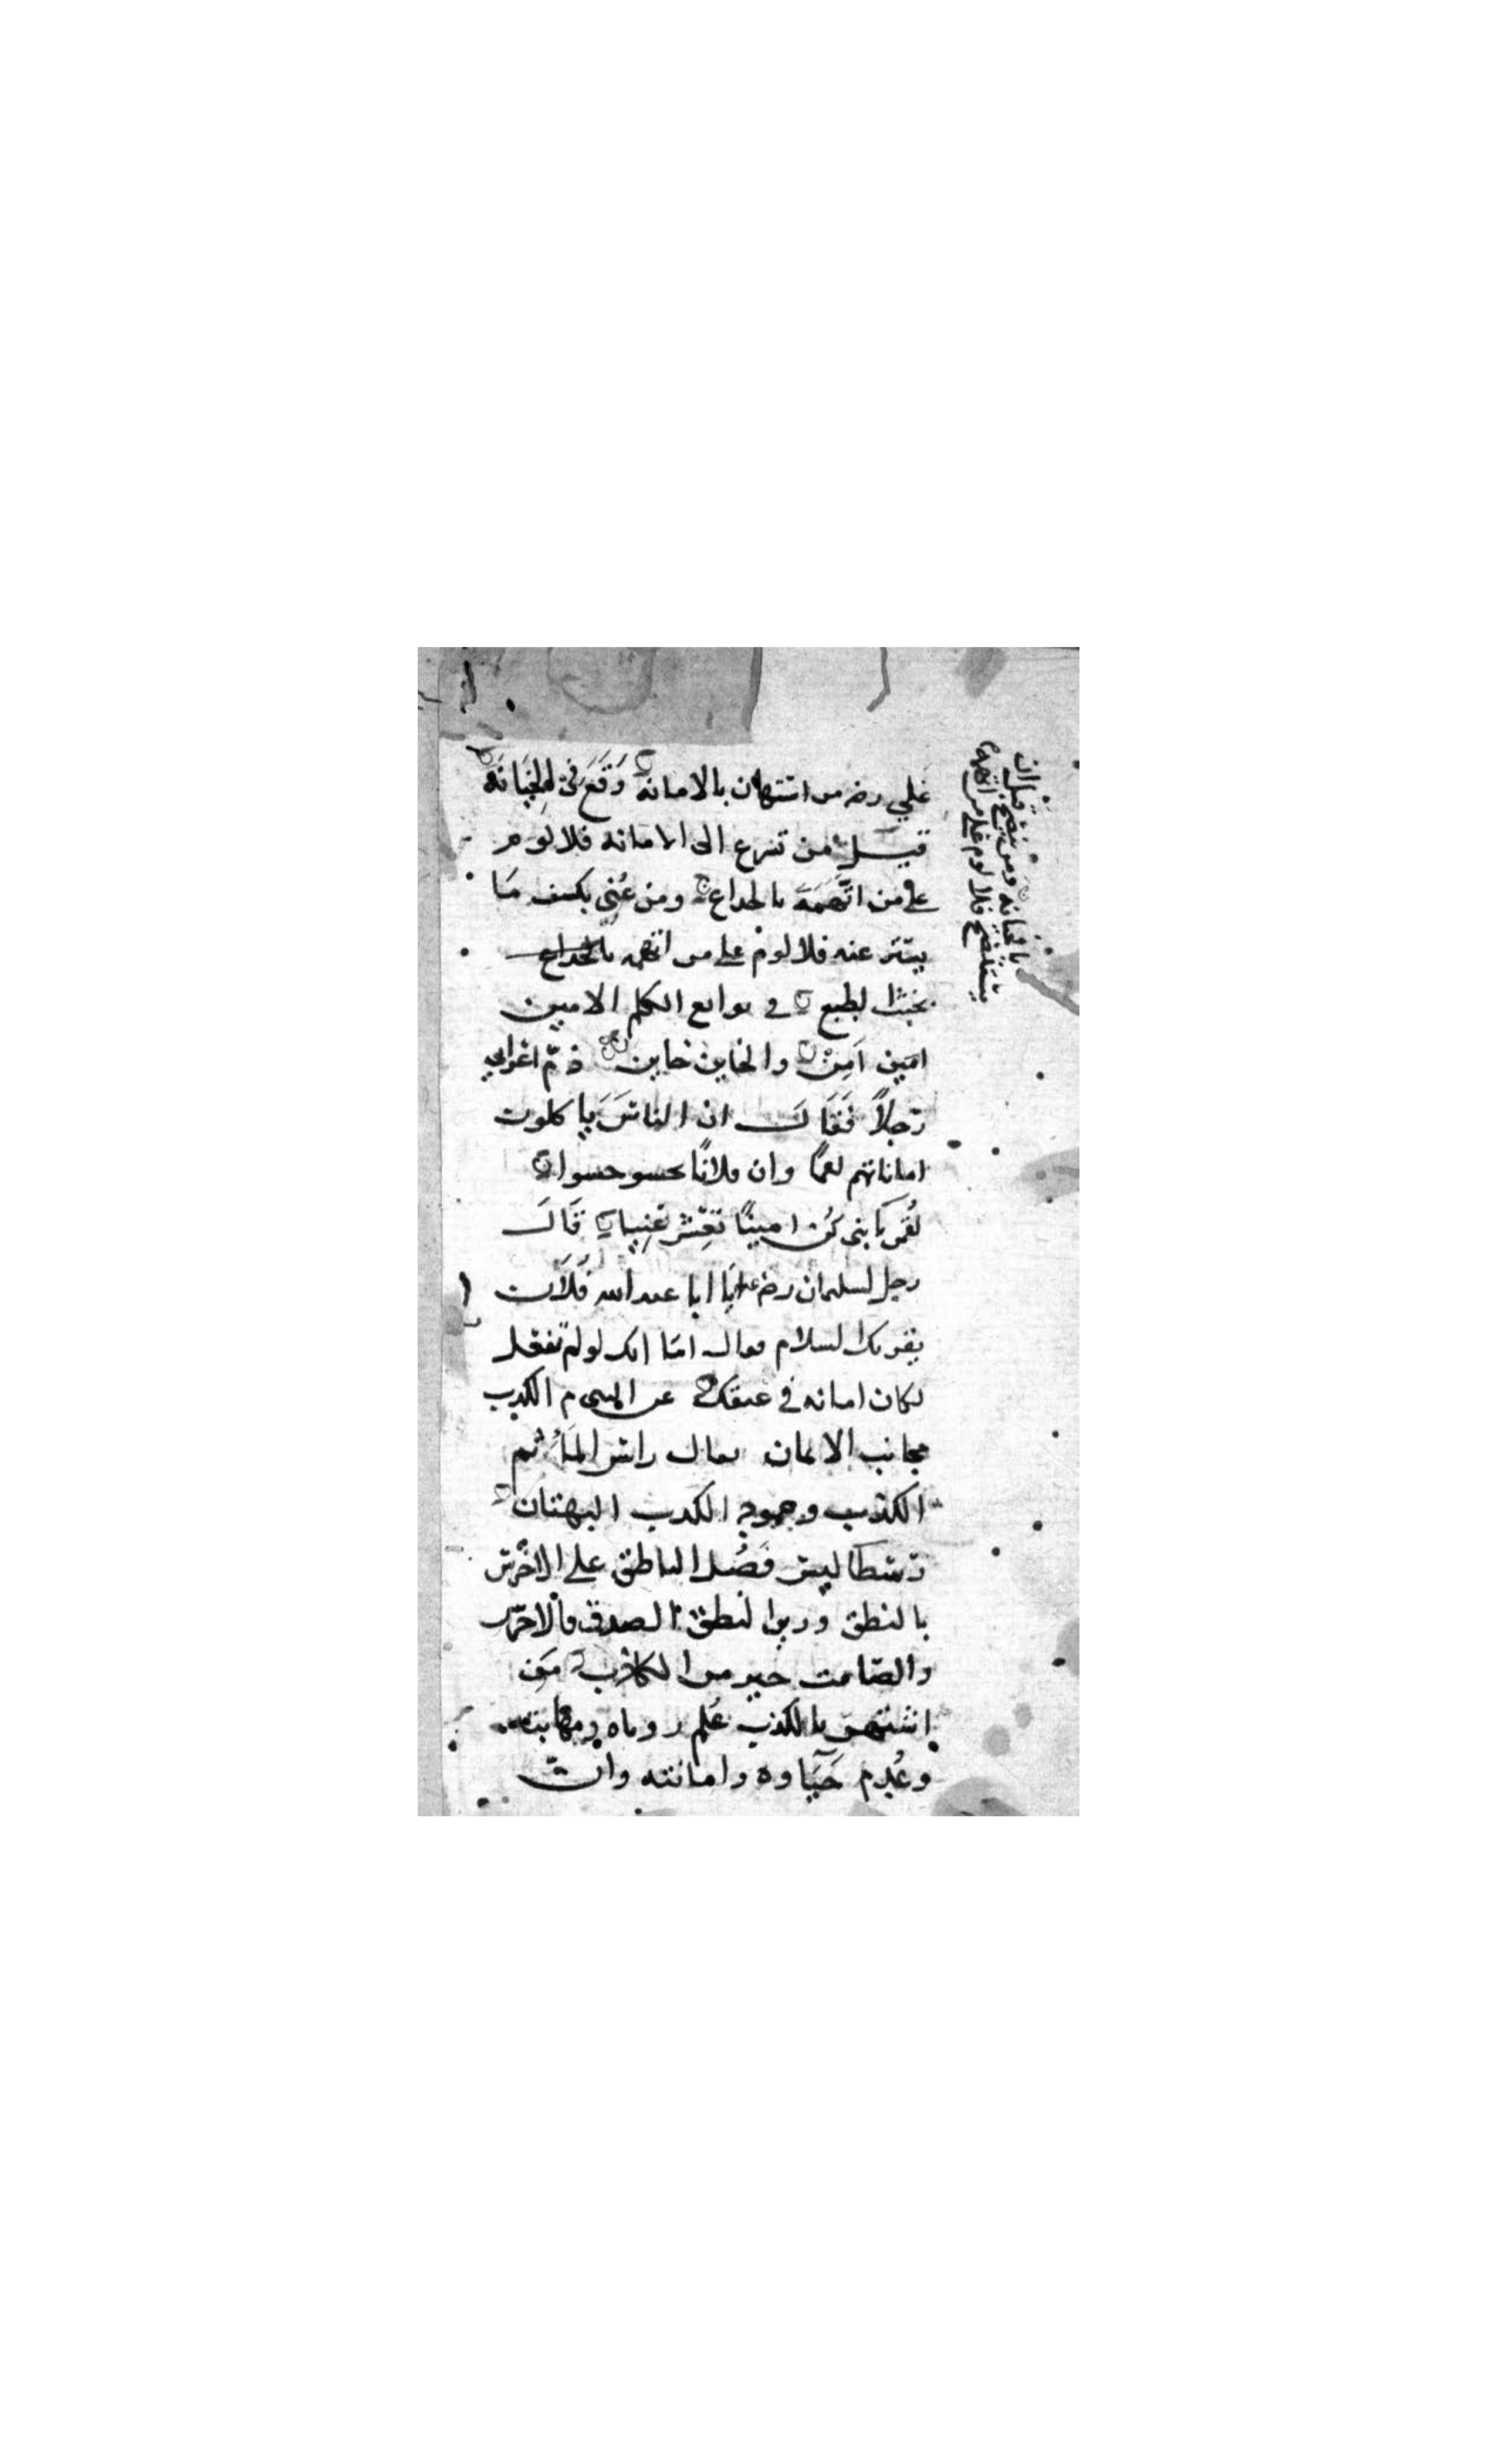 علي رضه من استهان بالامانه وَقَعَ في الخِيَانَه
قيل من تسرع الى الامانه فلا لوم
على من اتَّهَمَهَ بالخداع ومن عُنِي بكشف مَا
يستر عنه فلا لوم على من اتهمه بالخداع
بخبث الطبع في نوابغ الكلم الامين
امين آمِنْ والخاين خاين ذمّ اعرابي
رجلاً فَقَالَ ان الناسَ يَاكلون
اماناتهم لقمًا وان فلانًا يحسو حسوا
لُقمن يَا بني كُن امينًا تَعِشْ غَنِيا قَالَ
رجل لسلمان رضه يَا ابا عبد الله فُلَان
يقريك السلام فقال امَا انك لو لم تفعل
لكان امانه في عنقك عن النبي م الكذب
مجانب الايمان يقال راس المَآثم
الكذب وعمود الكذب البهتان
رسطاليس فَضُل الناطق على الاخرس
بالنطق وزين النطق الصدق فالاخرس
والصّامت خير من الكاذب مَن
اشتهر بالكذب عُدِم ومهابته
وعُدِم حَيَاوه وامانته وان
قيل ان
يا خيانه ومن ينصح قبل ان
يستنصح فلا لوم على من اتهمه